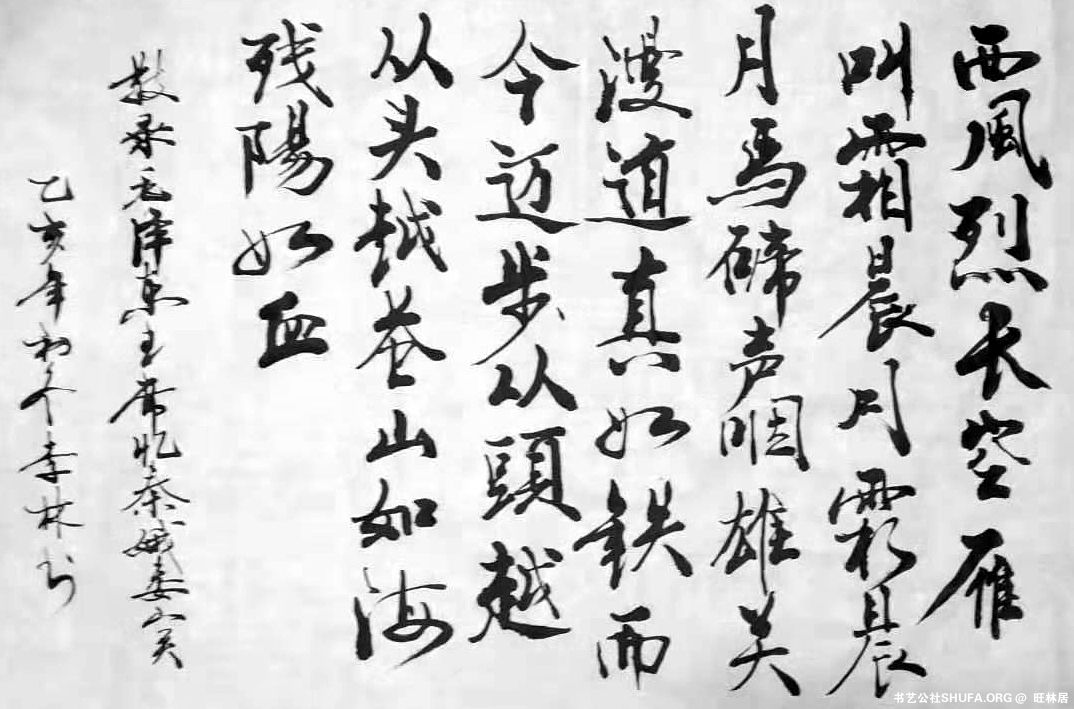 西風烈长空雁
叫霜晨月霜晨
月馬蹄声咽雄关
漫道真如鉄而
今迈步从頭越
从头越苍山如海
残陽如血
敬录毛泽东主席忆秦娥娄山关
乙亥年初冬李林书
书艺公社SHUFA.ORG @ 旺林居